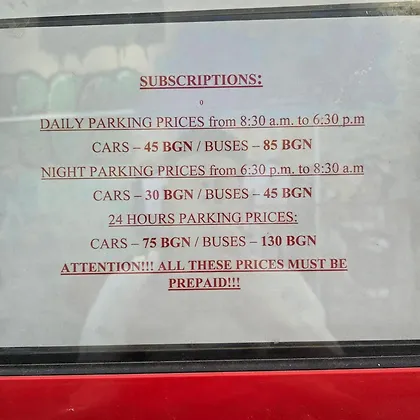 SUBSCRIPTIONS:
0
DAILY PARKING PRICES from 8:30 a.m. to 6:30 p.m
CARS – 45 BGN / BUSES – 85 BGN
NIGHT PARKING PRICES from 6:30 p.m. to 8:30 a.m
CARS – 30 BGN / BUSES – 45 BGN
24 HOURS PARKING PRICES:
CARS – 75 BGN / BUSES – 130 BGN
ATTENTION!!! ALL THESE PRICES MUST BE
PREPAID!!!